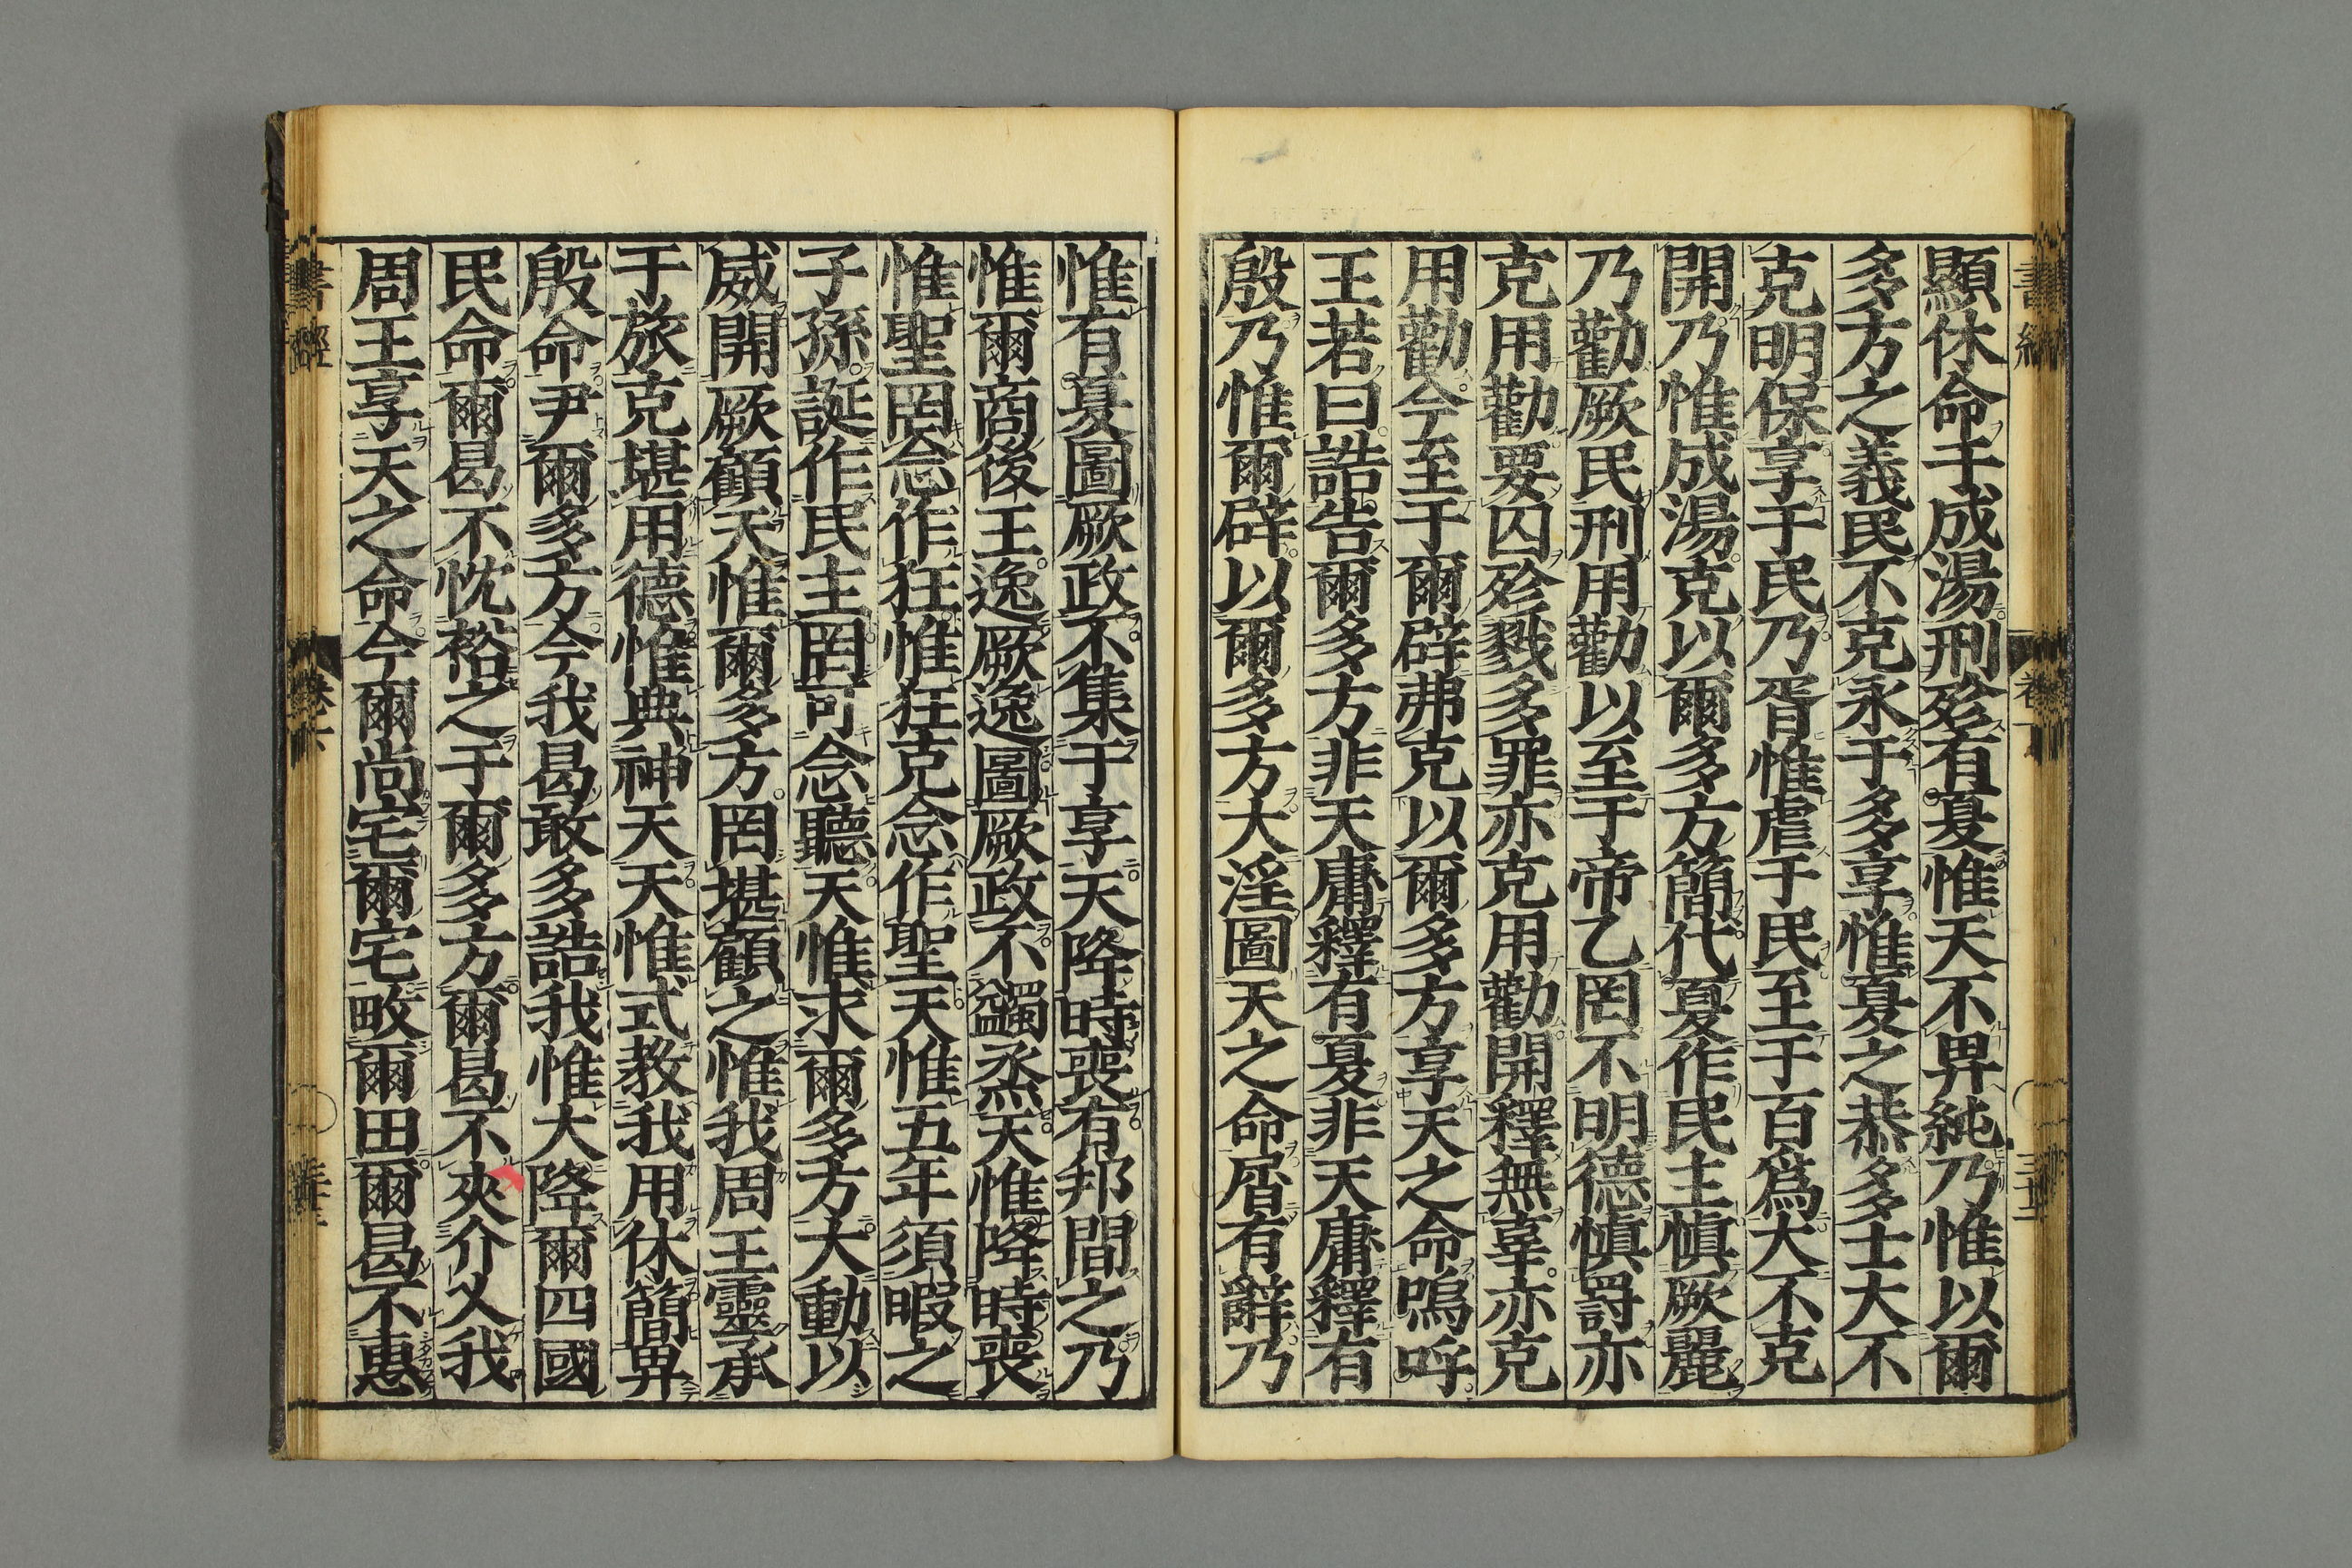 顯休命于成湯刑殄有夏惟天不畀純乃惟以爾
多方之義民不克永于多享惟夏之恭多士大不
克明保享于民乃胥惟虐于民至于百爲大不克
開乃惟成湯克以爾多方簡代夏作民主愼厥麗
乃勸厥民刑用勸以至于帝乙罔不明德愼罰亦
克用勸要囚殄戮多罪亦克用勸開釋無辜亦克
用勸今至于爾辟弗克以爾多方享天之命嗚呼
王若曰誥告爾多方非天庸釋有夏非天庸釋有
殷乃惟爾辟以爾多方大淫圖天之命屑有辭乃
惟有夏圖厥政不集于享天降時喪有邦間之乃
惟爾商後王逸厥逸圖厥政不蠲烝天惟降時喪
惟聖罔念作狂惟狂克念作聖天惟五年須暇之
子孫誕作民主罔可念聽天惟求爾多方大動以
威開厥顧天惟爾多方罔堪顧之惟我周王靈承
于旅克堪用德惟典神天天惟式教我用休簡畀
殷命尹爾多方今我曷敢多誥我惟大降爾四國
民命爾曷不忱裕之于爾多方爾曷不夾介乂我
周王享天之命今爾尚宅爾宅畋爾田爾曷不惠
書經